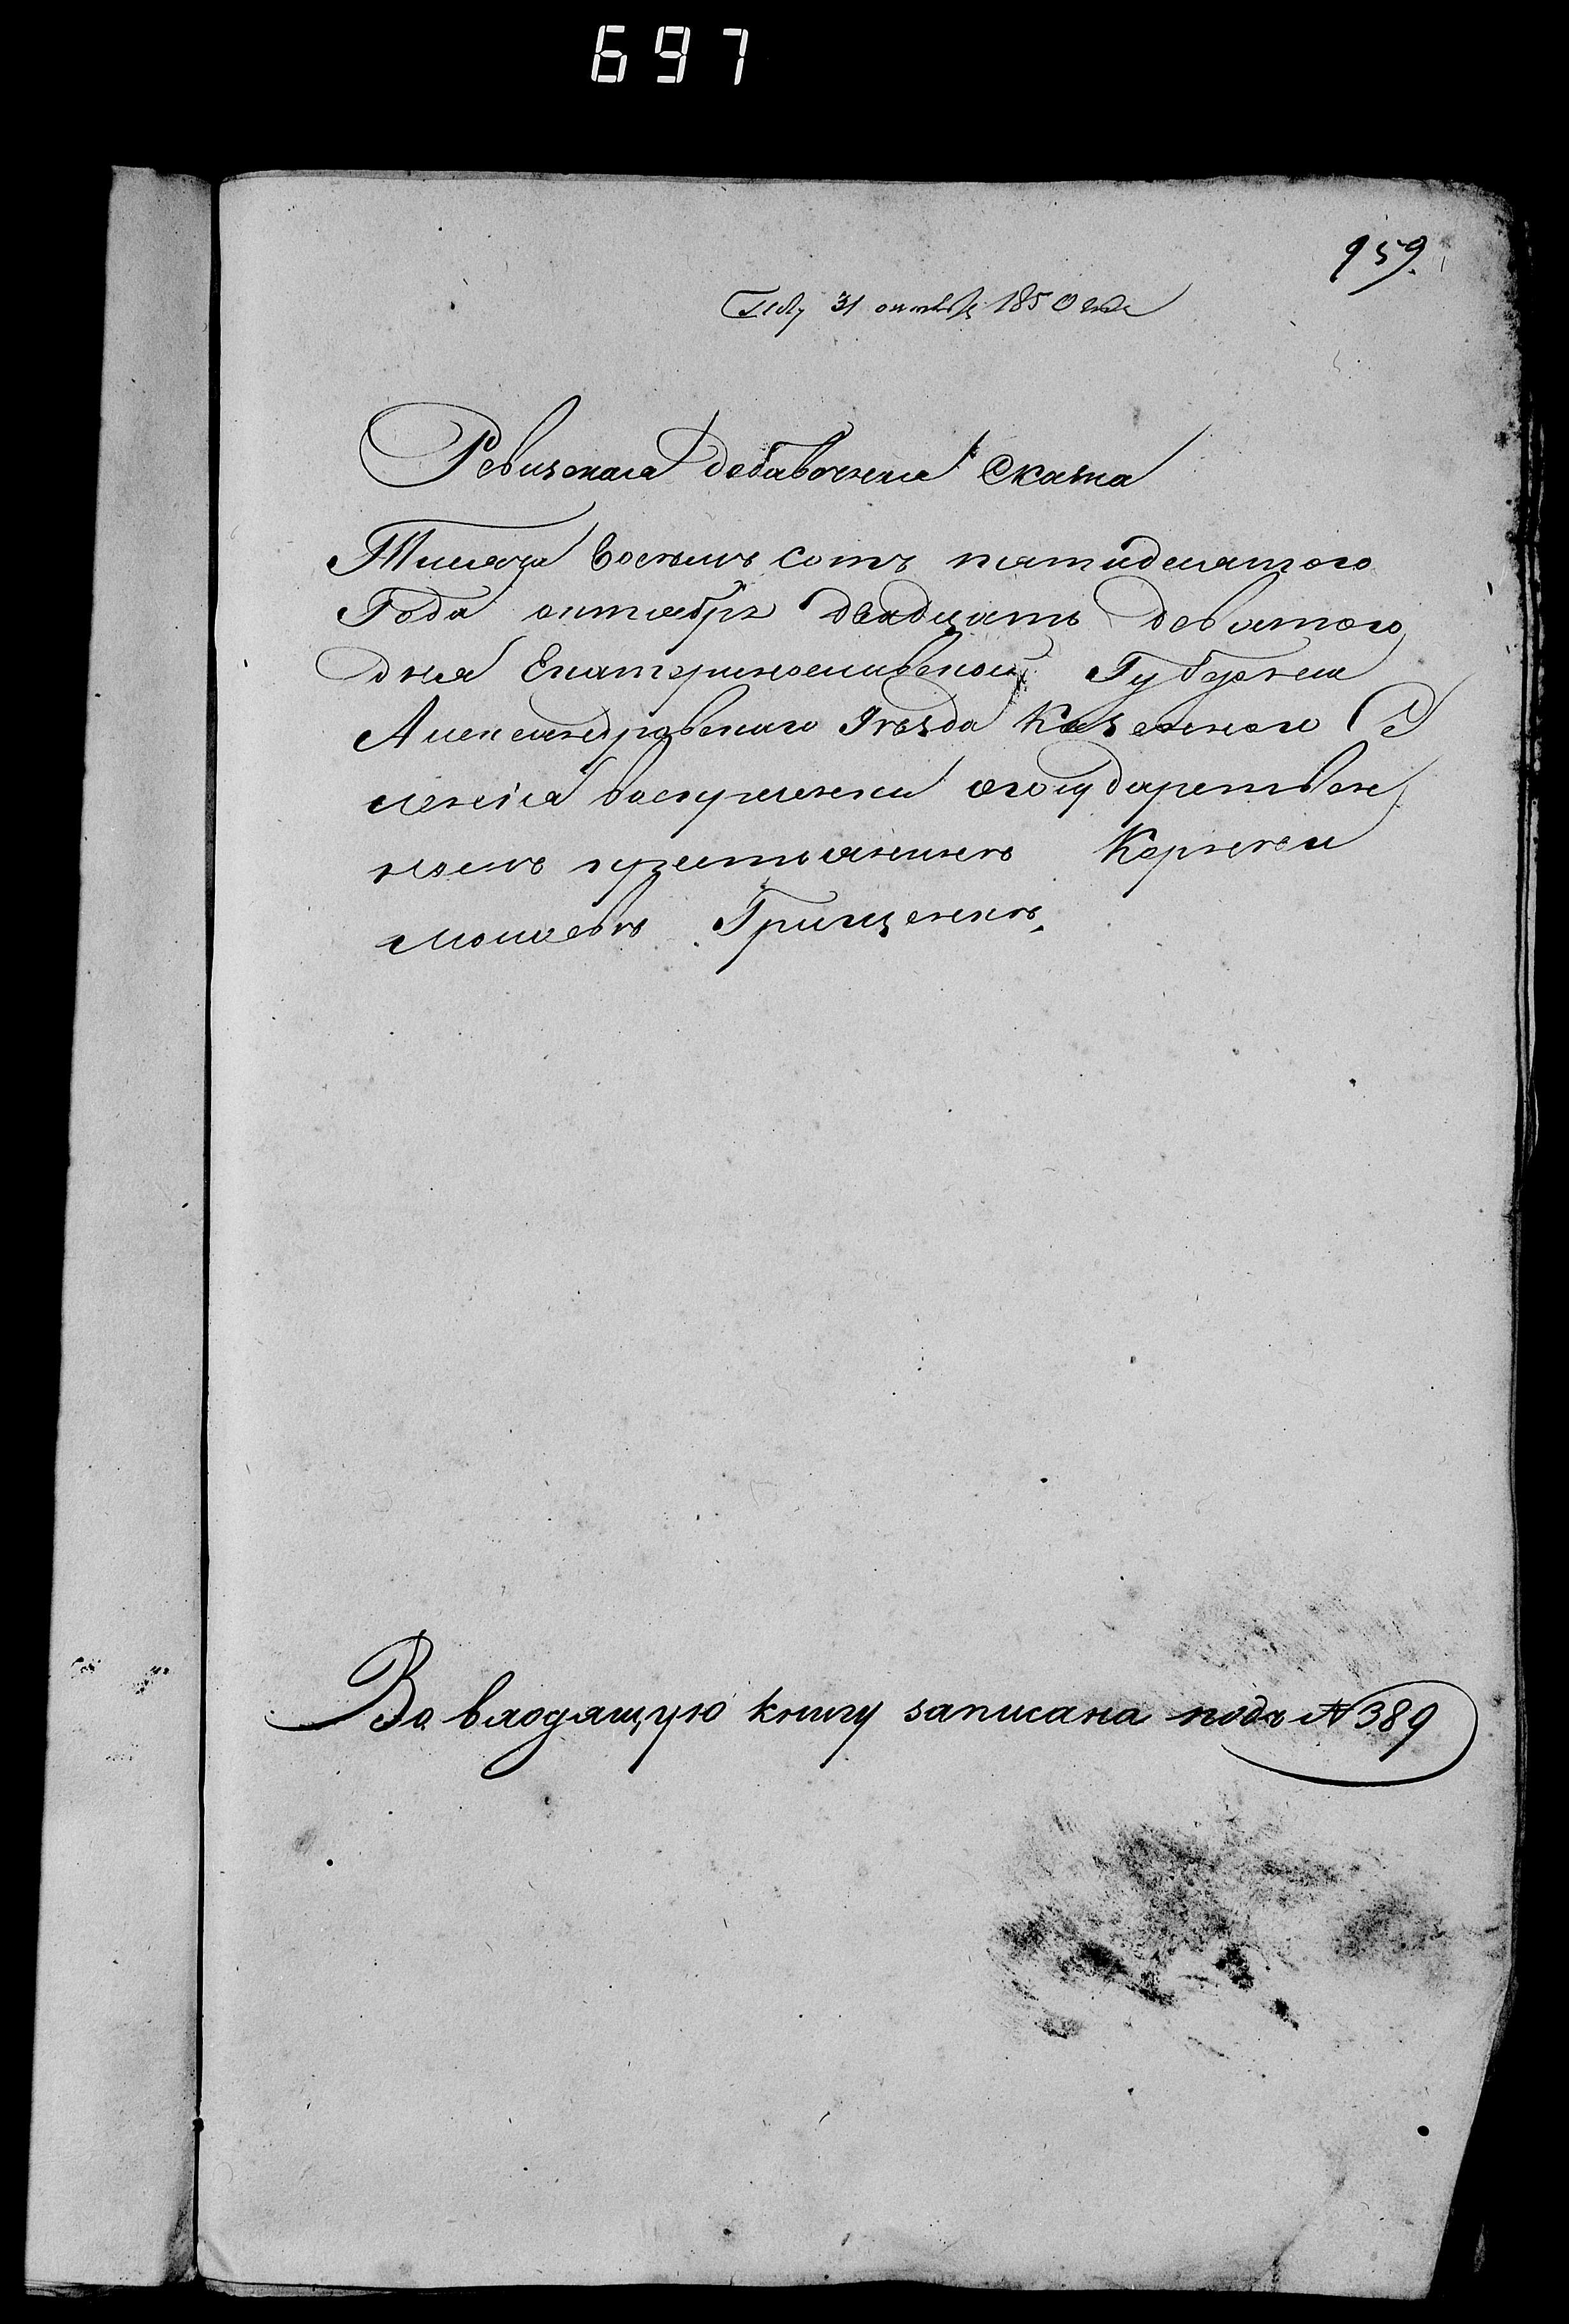 697
959.
31 октября 1850 года
Ревизская добавочная Сказка
Тысяча восемь сотъ пятидесятого
Года октября двадцать девятого
дня Екатеринославской Губернии
Александровского Уезда Казенного Се
ленія воскресенки огосударствен
номъ крестьянинъ Корней
Моисеевъ Грищенко.
Во входящую книгу записана подъ № 389